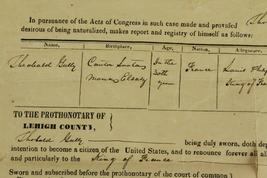 In pursuance of the Acts of Congress in such case made and provided
desirous of being naturalized, makes report and registry of himself as follows:
Name, Birthplace, Age, Nation, Allegiance,
Theobald Gutty Canton In the France Louis
30th King of Fra
year
TO THE PROTHONOTARY OF
LEHIGH COUNTY,
Theobald Gutty being duly sworn, doth dep
intention to become a citizen of the United States, and to renounce forever all
and particularly to the King of France
Sworn and subscribed before the prothonotary of the court of common